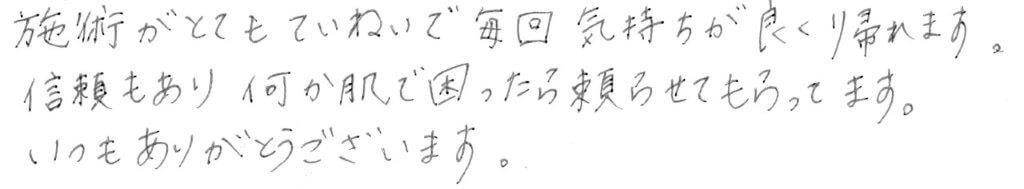 施術がとてもていねいで毎回気持ちが良くり帰れます。
信頼もあり何か肌で困ったら頼らせてもらってます。
いつもありがとうございます。